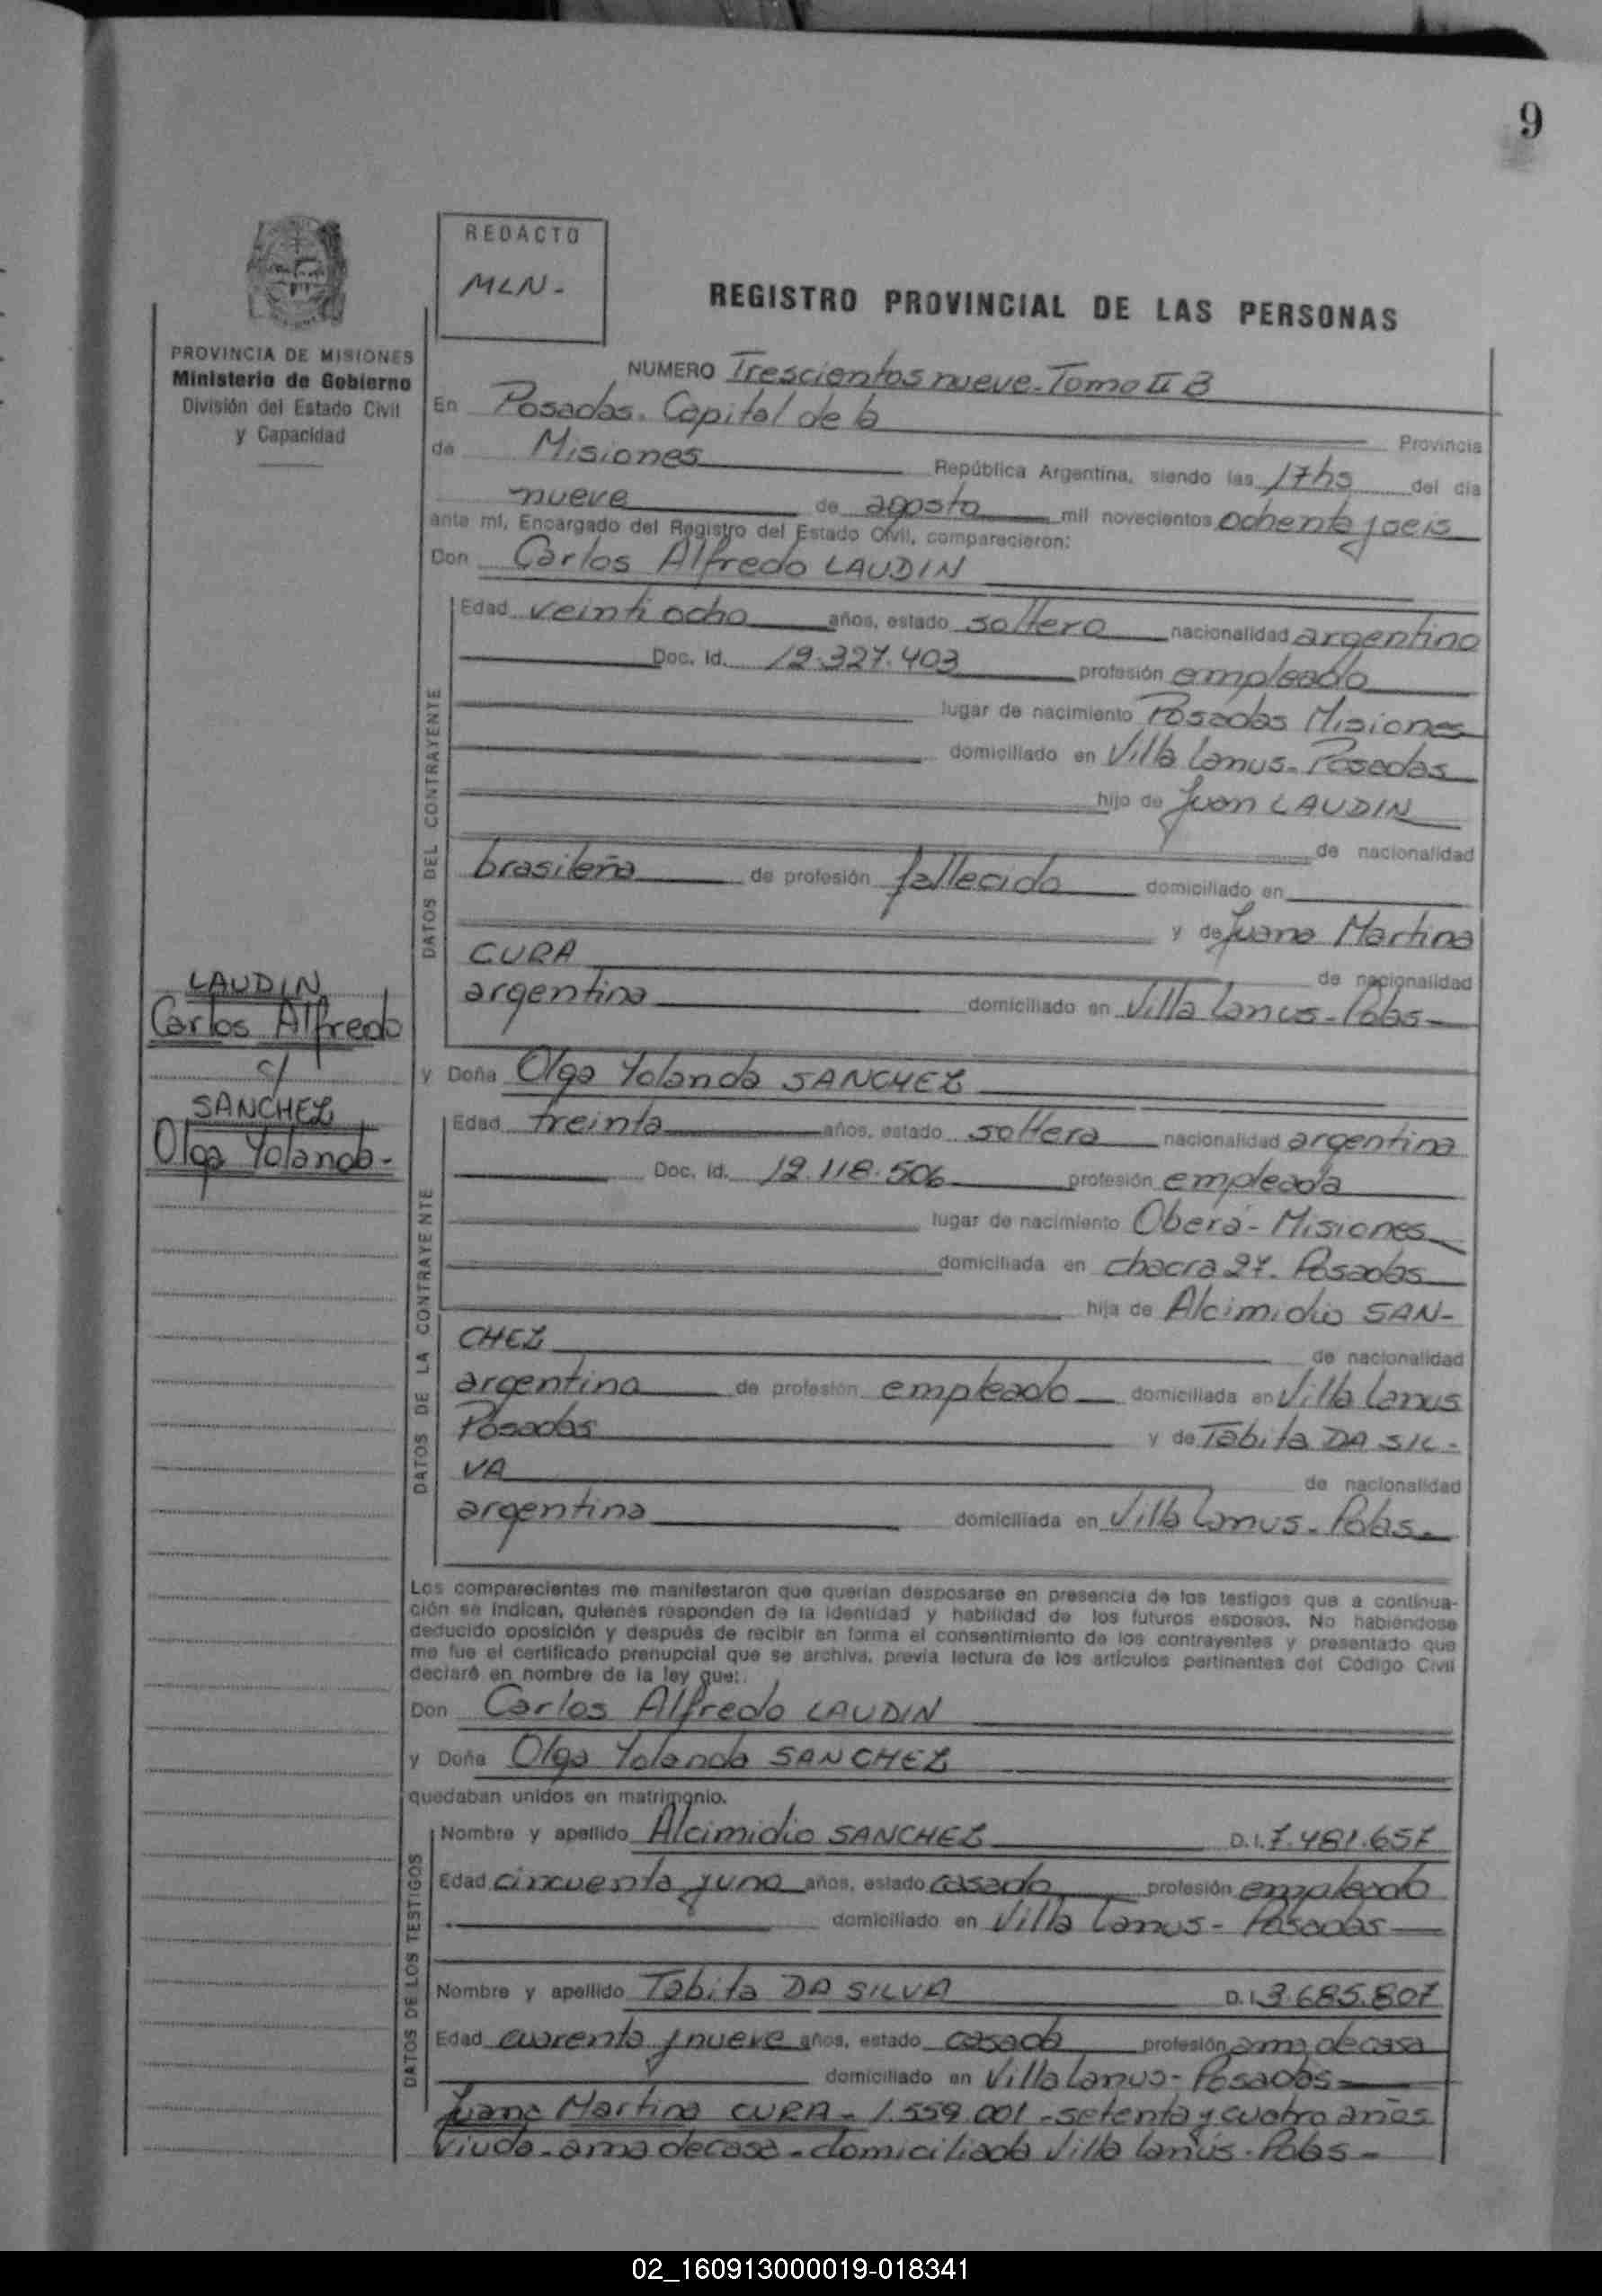 9
REDACTO
MLN-
REGISTRO PROVINCIAL DE LAS PERSONAS
PROVINCIA DE MISIONES
Ministerio de Gobierno
División del Estado Civil
y Capacidad
NUMERO Trescientos nueve-Tomo II B
En Posadas. Capital de la Provincia
de Misiones República Argentina, siendo las 17hs del día
nueve de agosto mil novecientos ochenta y seis
ante mí, Encargado del Registro del Estado Civil, comparecieron:
Don Carlos Alfredo LAUDIN
DATOS DEL CONTRAYENTE
Edad veintiocho años, estado soltero nacionalidad argentino
Doc. Id. 12.327.403 profesión empleado
lugar de nacimiento Posadas Misiones
domiciliado en Villa Lanus-Posadas
hijo de Juan LAUDIN
de nacionalidad
brasileña de profesión fallecido domiciliado en
y de Juana Martina
CURA de nacionalidad
argentina domiciliado en Villa Lanus-Pdas-
LAUDIN
Carlos Alfredo
c/
SANCHEZ
Olga Yolanda-
y Doña Olga Yolanda SANCHEZ
DATOS DE LA CONTRAYENTE
Edad treinta años, estado soltera nacionalidad argentina
Doc. Id. 12.118.506 profesión empleada
lugar de nacimiento Oberá-Misiones
domiciliada en chacra 27. Posadas
hija de Alcimidio SAN-
CHEZ de nacionalidad
argentina de profesión empleado domiciliada en Villa Lanus
Posadas y de Tabita DA SIL-
VA de nacionalidad
argentina domiciliada en Villa Lanus-Pdas-
Los comparecientes me manifestaron que querían desposarse en presencia de los testigos que a continua-
ción se indican, quienes responden de la identidad y habilidad de los futuros esposos. No habiéndose
deducido oposición y después de recibir en forma el consentimiento de los contrayentes y presentado que
me fue el certificado prenupcial que se archiva, previa lectura de los artículos pertinentes del Código Civil
declaré en nombre de la ley que:
Don Carlos Alfredo LAUDIN
y Doña Olga Yolanda SANCHEZ
quedaban unidos en matrimonio.
DATOS DE LOS TESTIGOS
Nombre y apellido Alcimidio SANCHEZ D.I. 7.481.657
Edad cincuenta y uno años, estado casado profesión empleado
domiciliado en Villa Lanus-Posadas
Nombre y apellido Tabita DA SILVA D.I. 3.685.807
Edad cuarenta y nueve años, estado casada profesión ama de casa
domiciliado en Villa Lanus-Posadas
Juana Martina CURA-1.559.001-setenta y cuatro años
viuda-ama de casa-domiciliada Villa Lanús-Pdas-
02_160913000019-018341